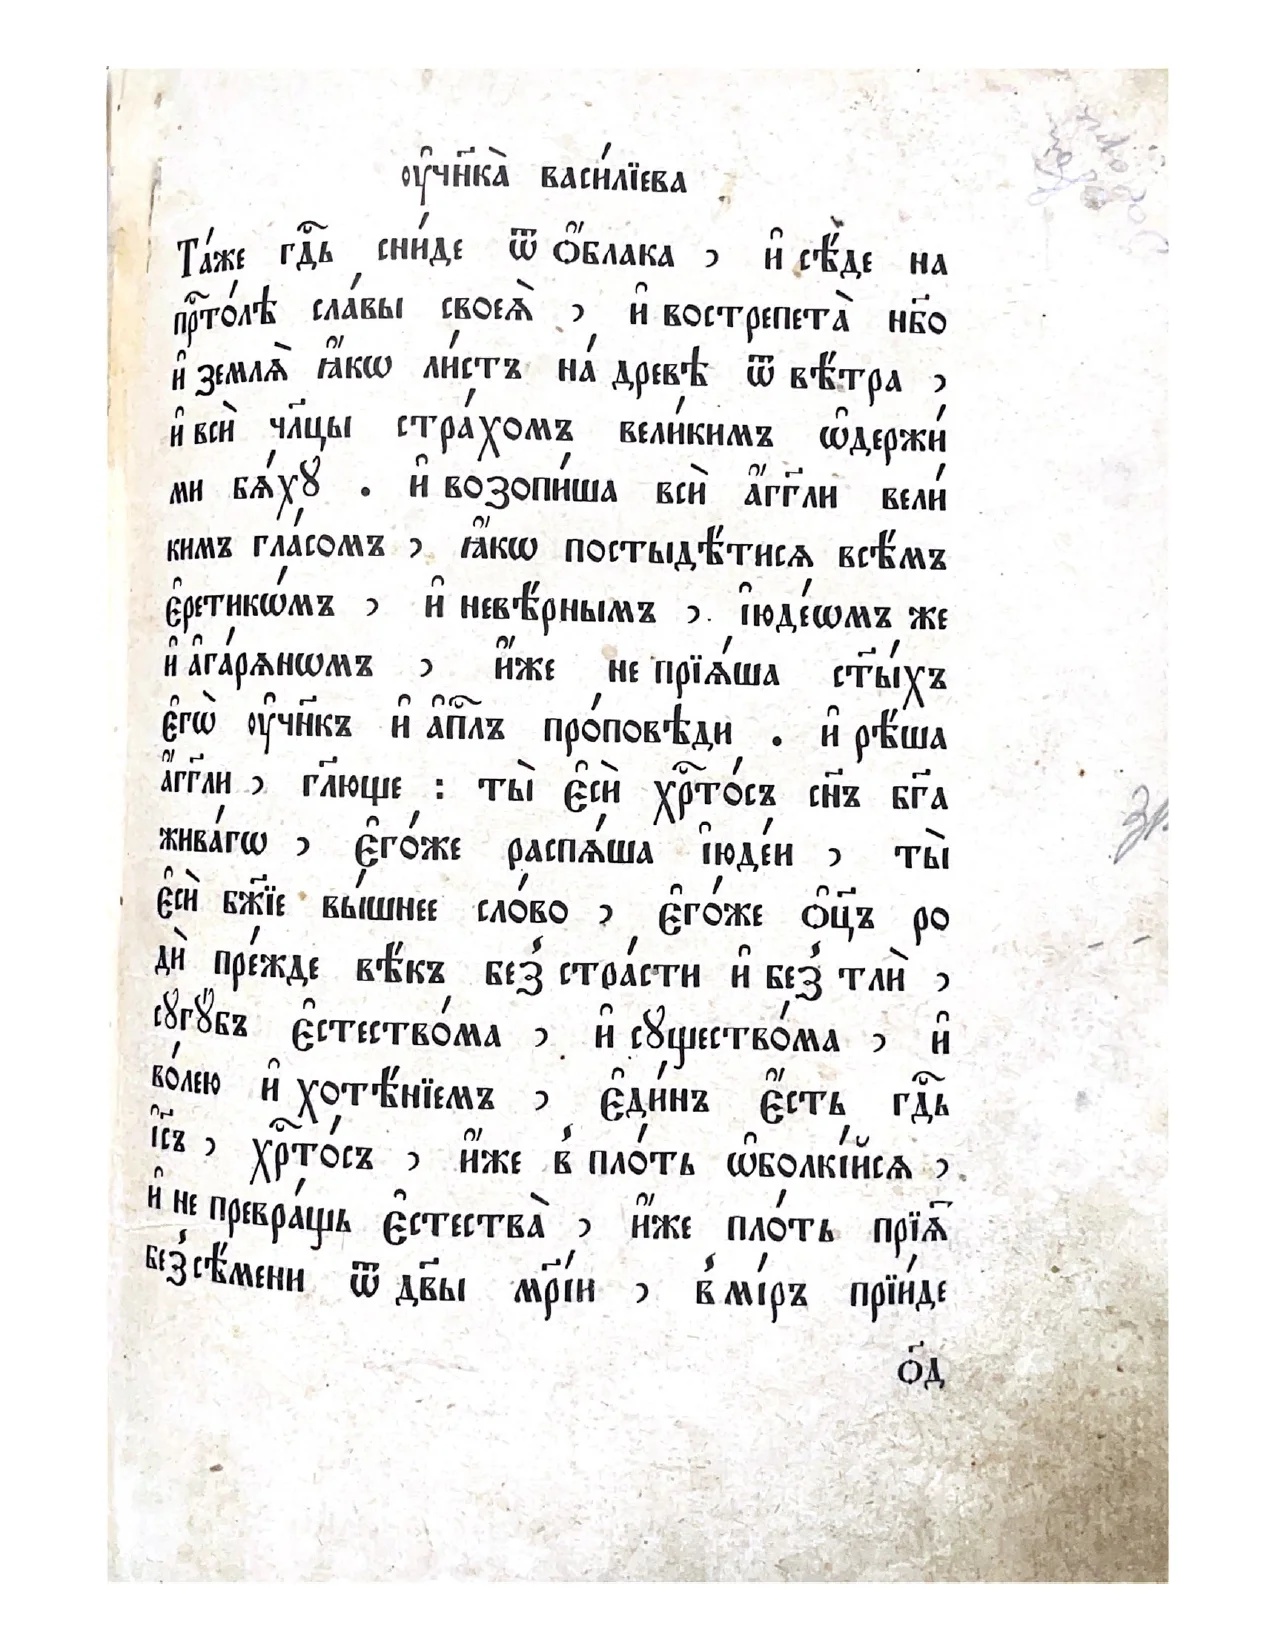 оу҆чн҃ка̀ васи́лїева
Та́же гдⷭ҇ь сни́де ѿ ѻ҆́блака , и҆ сѣ́де на
прⷭ҇то́лѣ сла́вы своеѧ̀ , и҆ вострепета̀ нб҃о
и҆ землѧ̀ ꙗ҆́кѡ ли́стъ на́ древѣ ѿ вѣ́тра ,
и҆ всѝ чл҃цы стра́хомъ вели́кимъ ѡ҆держи́
ми бѧ́хꙋ . и҆ возопи́ша всѝ а҆́гг҃ли вели́
кимъ гла́сомъ , ꙗ҆́кѡ постыдѣ́тисѧ всѣ́мъ
є҆ретикѡ́мъ , и҆ невѣ́рнымъ , і҆юде́ѡмъ же
и҆ а҆га́рѧнѡмъ , и҆́же не прїѧ́ша ст҃ы́хъ
є҆гѡ̀ оу҆чн҃къ и҆ а҆пⷭ҇лъ про́повѣди . и҆ рѣ́ша
а҆́гг҃ли , гл҃юще : ты̀ є҆сѝ хрⷭ҇то́съ сн҃ъ бг҃а
жива́гѡ , є҆го́же распѧ́ша і҆юде́и , ты̀
є҆сѝ бж҃їе вы́шнее сло́во , є҆го́же ѻ҆ц҃ъ ро
дѝ пре́жде вѣ́къ без̾ стра́сти и҆ без̾ тлѝ ,
сꙋгꙋ́бъ є҆стество́ма , и҆ сꙋщество́ма , и҆
во́лею и҆ хотѣ́нїемъ , є҆ди́нъ є҆́сть гдⷭ҇ь
і҆с҃ъ , хрⷭ҇то́съ , и҆́же в̾ пло́ть ѡ҆болкі́йсѧ ,
и҆ не превра́щь є҆стества̀ , и҆́же пло́ть прїѧ҃
без̾ сѣ́мени ѿ дв҃ы мр҃і́и , в̾ мі́ръ прїи́де
ѻ҃д